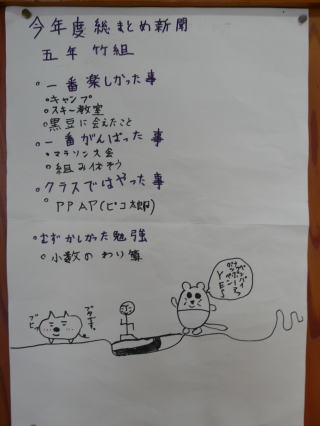 今年度総まとめ新聞
五年 竹組
○一番楽しかった事
○キャンプ
○スキー教室
○黒豆に会えたこと
○一番がんばった事
○マラソン大会
○組み体そう
○クラスではやった事
○PPAP(ピコ太郎)
○むずかしかった勉強
○小数のわり算
YES
ブタです。
ブヒッ